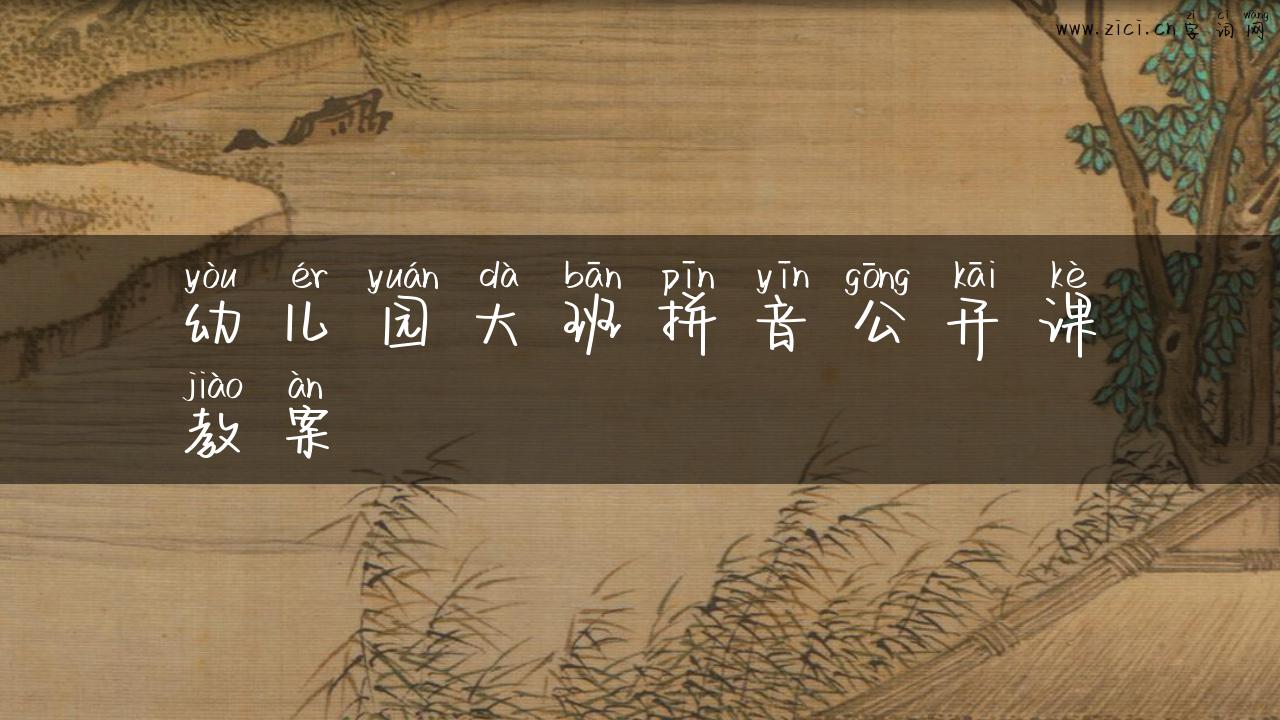 zì cí wǎng
www.zici.cn字词网
yòu ér yuán dà bān pīn yīn gōng kāi kè
幼儿园大班拼音公开课
jiào àn
教案